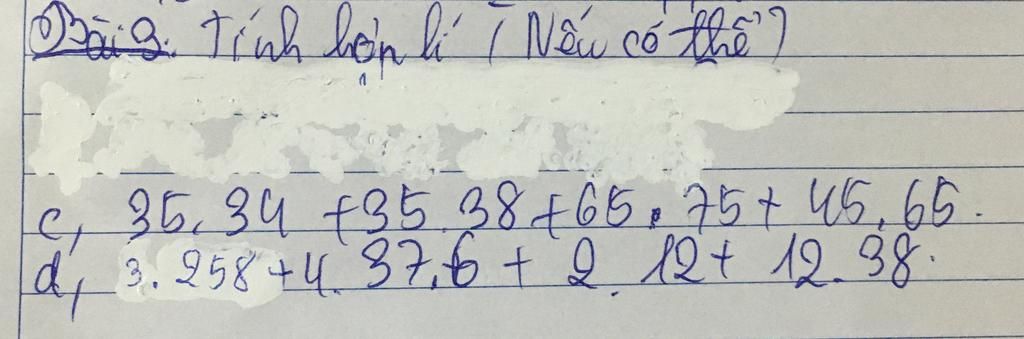 Bài 3. Tính hợp lí (Nếu có thể)
c, 35.34 +35.38+65.75+45.65.
d, 3.258+4.37.6 + 2.12+ 12.38.